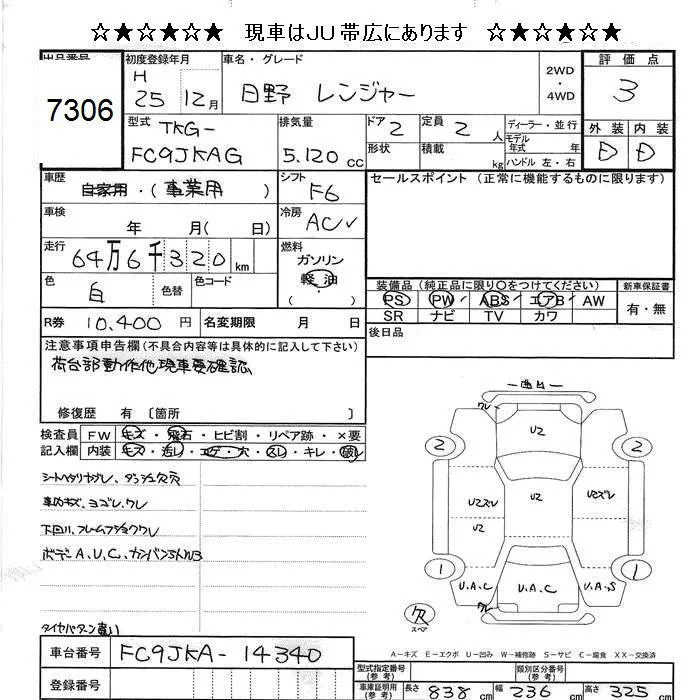 ☆★☆★☆★ 現車はJU帯広にあります ☆★☆★☆★
出品番号 7306
初度登録年月 H 25 12月
車名・グレード 日野 レンジャー
2WD ・ 4WD
評価点 3
型式 TKG- FC9JKAG
排気量 5.120 cc
ドア 2
定員 2 人
形状
積載 kg
ディーラー・並行
モデル年式 年
ハンドル 左・右
外装 内装
D D
車歴 自家用・(事業用)
シフト F6
セールスポイント (正常に機能するものに限ります)
車検 年 月( 日)
冷房 AC
走行 64万6千320km
燃料 ガソリン ・ 軽油 ( )
色 白 色替
色コード
装備品 (純正品に限り○をつけてください)
新車保証書 有・無
PS PW ABS エアB AW
SR ナビ TV カワ
R券 10,400 円
名変期限 月 日
後日品
注意事項申告欄(不具合内容等は具体的に記入して下さい)
荷台部動作他現車要確認
修復歴 有 〔箇所 〕
検査員記入欄
FW キズ・飛石・ヒビ割・リペア跡・×要
内装 キズ・汚レ・コゲ・穴・スレ・キレ・破
シートヘタリヤブレ、ダッシュ欠穴
下回リ、フレームフショクワレ
タイヤパターン違い
ワレ U2
2 2
U2ズレ U2 U2ズレ
U2
1 1
U.A.C U.A.C U.A.S
ワレ
欠 スペア
A-キズ E-エクボ U-凹み W-補修跡 S-サビ C-腐食 XX-交換済
車台番号 FC9JKA-14340
登録番号
型式指定番号(参考)
類別区分番号(参考)
車庫証明用(参考) 長さ 838 cm 幅 236 cm 高さ 325 cm